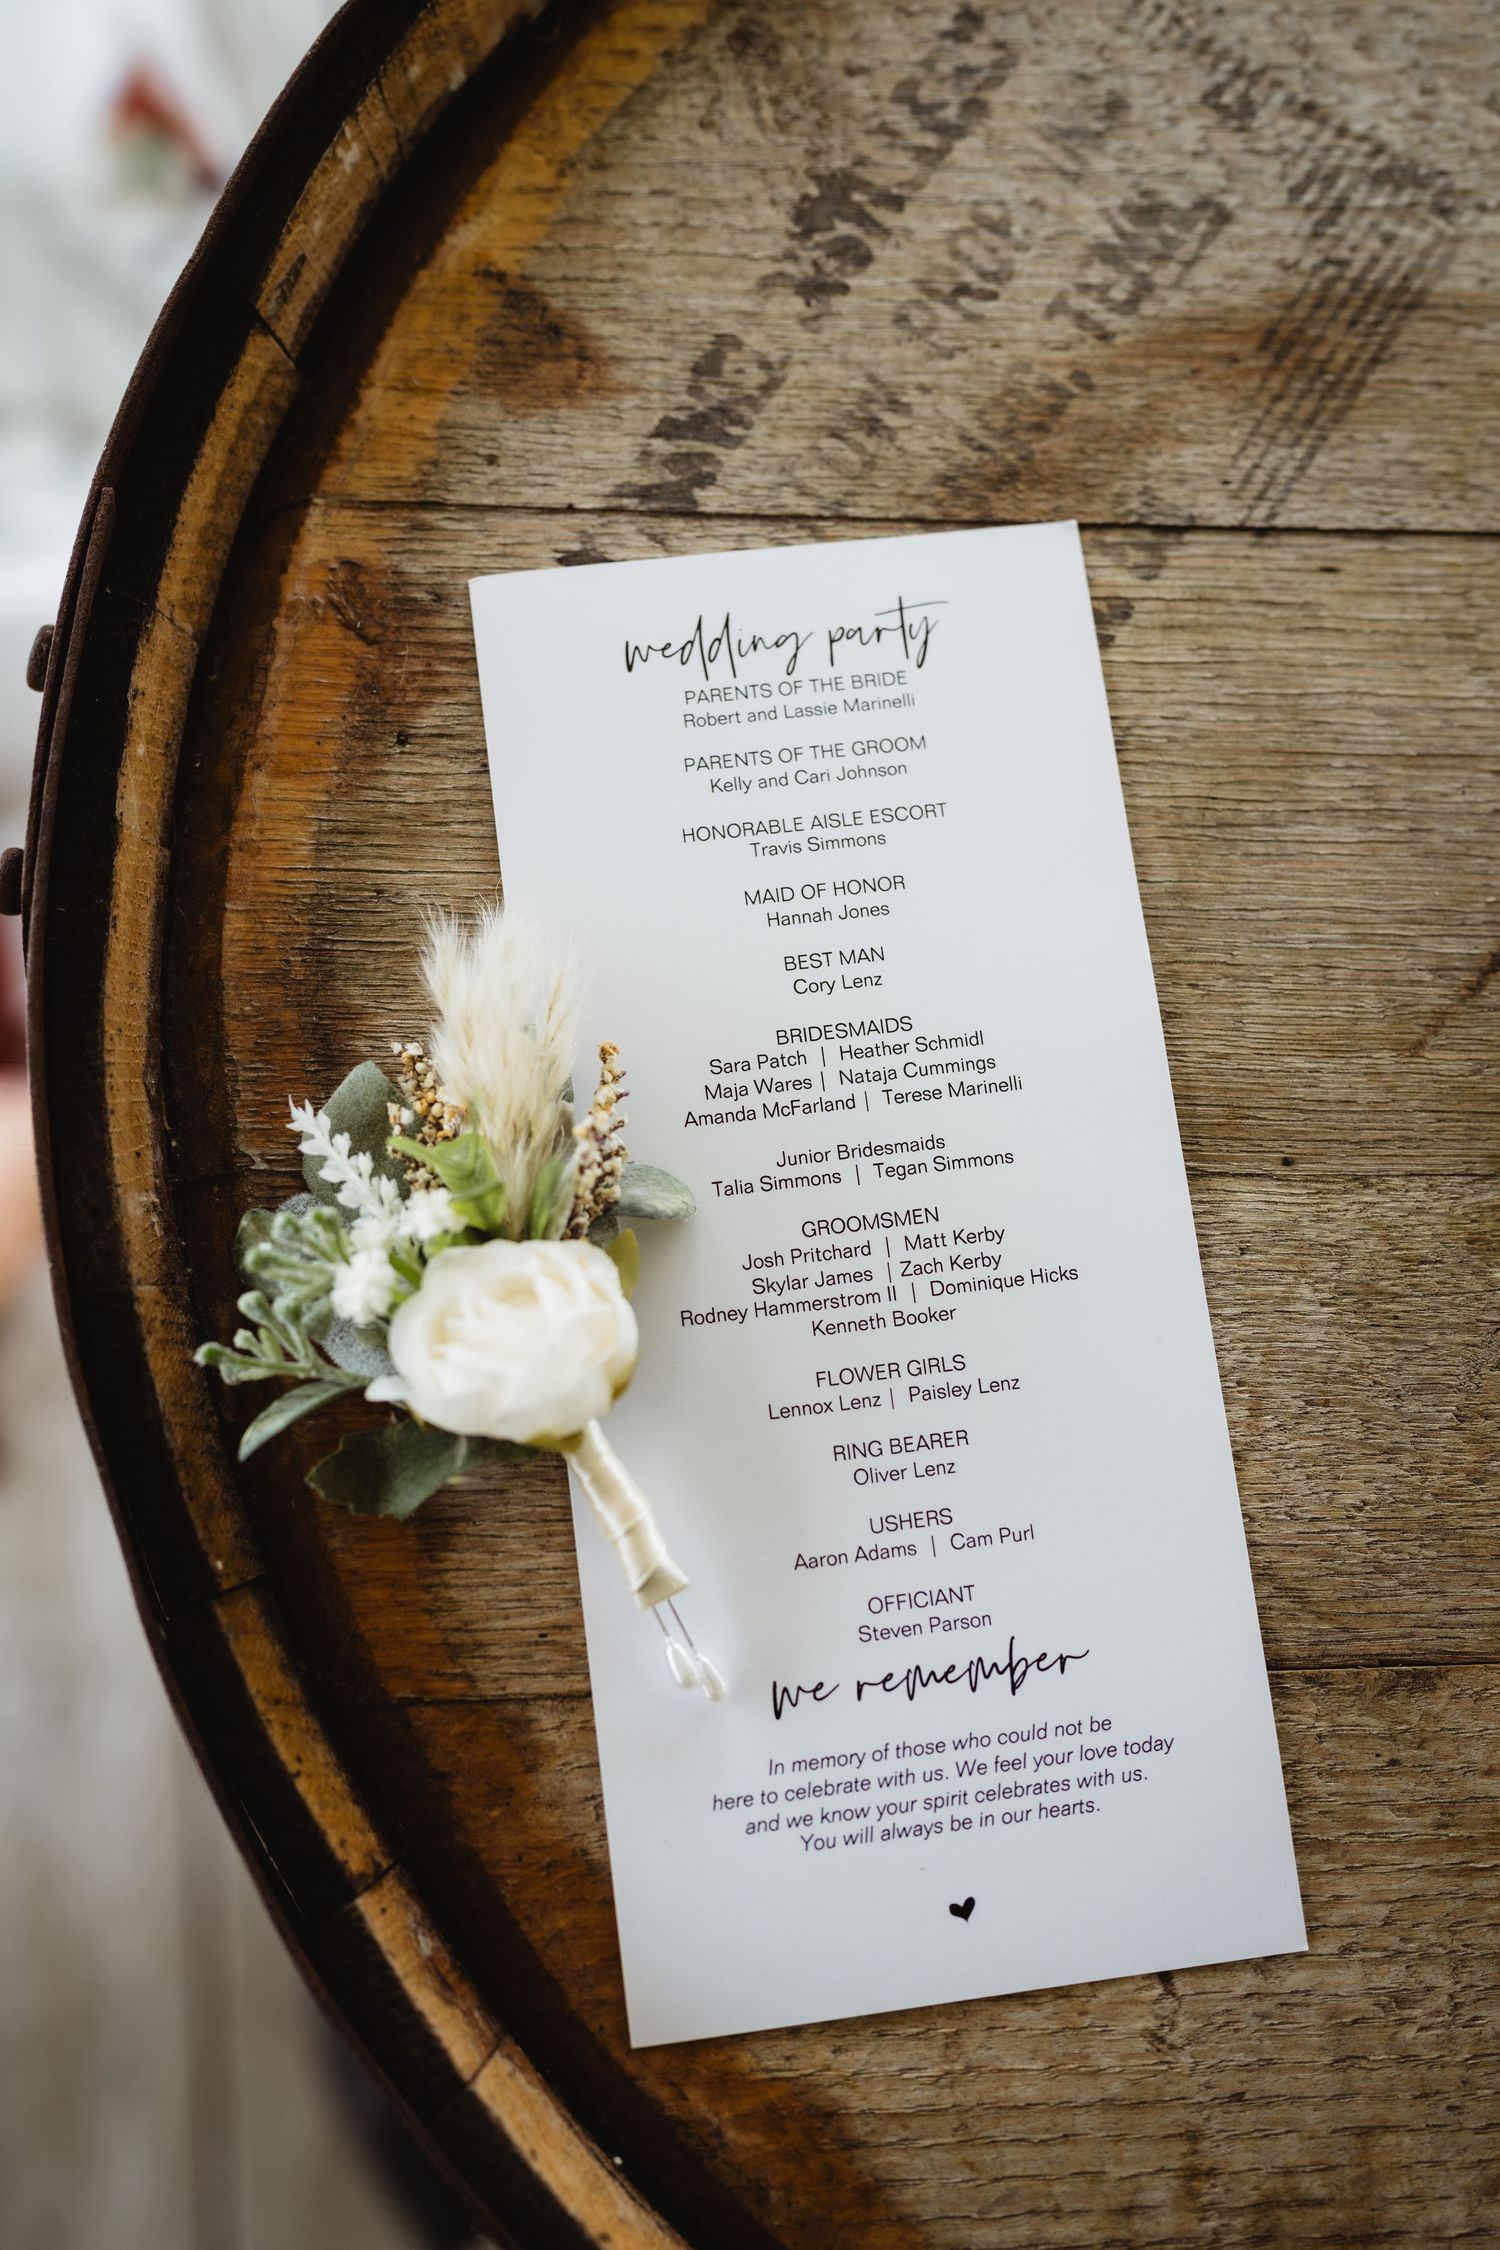 wedding party
PARENTS OF THE BRIDE
Robert and Lassie Marinelli
PARENTS OF THE GROOM
Kelly and Cari Johnson
HONORABLE AISLE ESCORT
Travis Simmons
MAID OF HONOR
Hannah Jones
BEST MAN
Cory Lenz
BRIDESMAIDS
Sara Patch | Heather Schmidl
Maja Wares | Nataja Cummings
Amanda McFarland | Terese Marinelli
Junior Bridesmaids
Talia Simmons | Tegan Simmons
GROOMSMEN
Josh Pritchard | Matt Kerby
Skylar James | Zach Kerby
Rodney Hammerstrom II | Dominique Hicks
Kenneth Booker
FLOWER GIRLS
Lennox Lenz | Paisley Lenz
RING BEARER
Oliver Lenz
USHERS
Aaron Adams | Cam Purl
OFFICIANT
Steven Parson
we remember
In memory of those who could not be
here to celebrate with us. We feel your love today
and we know your spirit celebrates with us.
You will always be in our hearts.